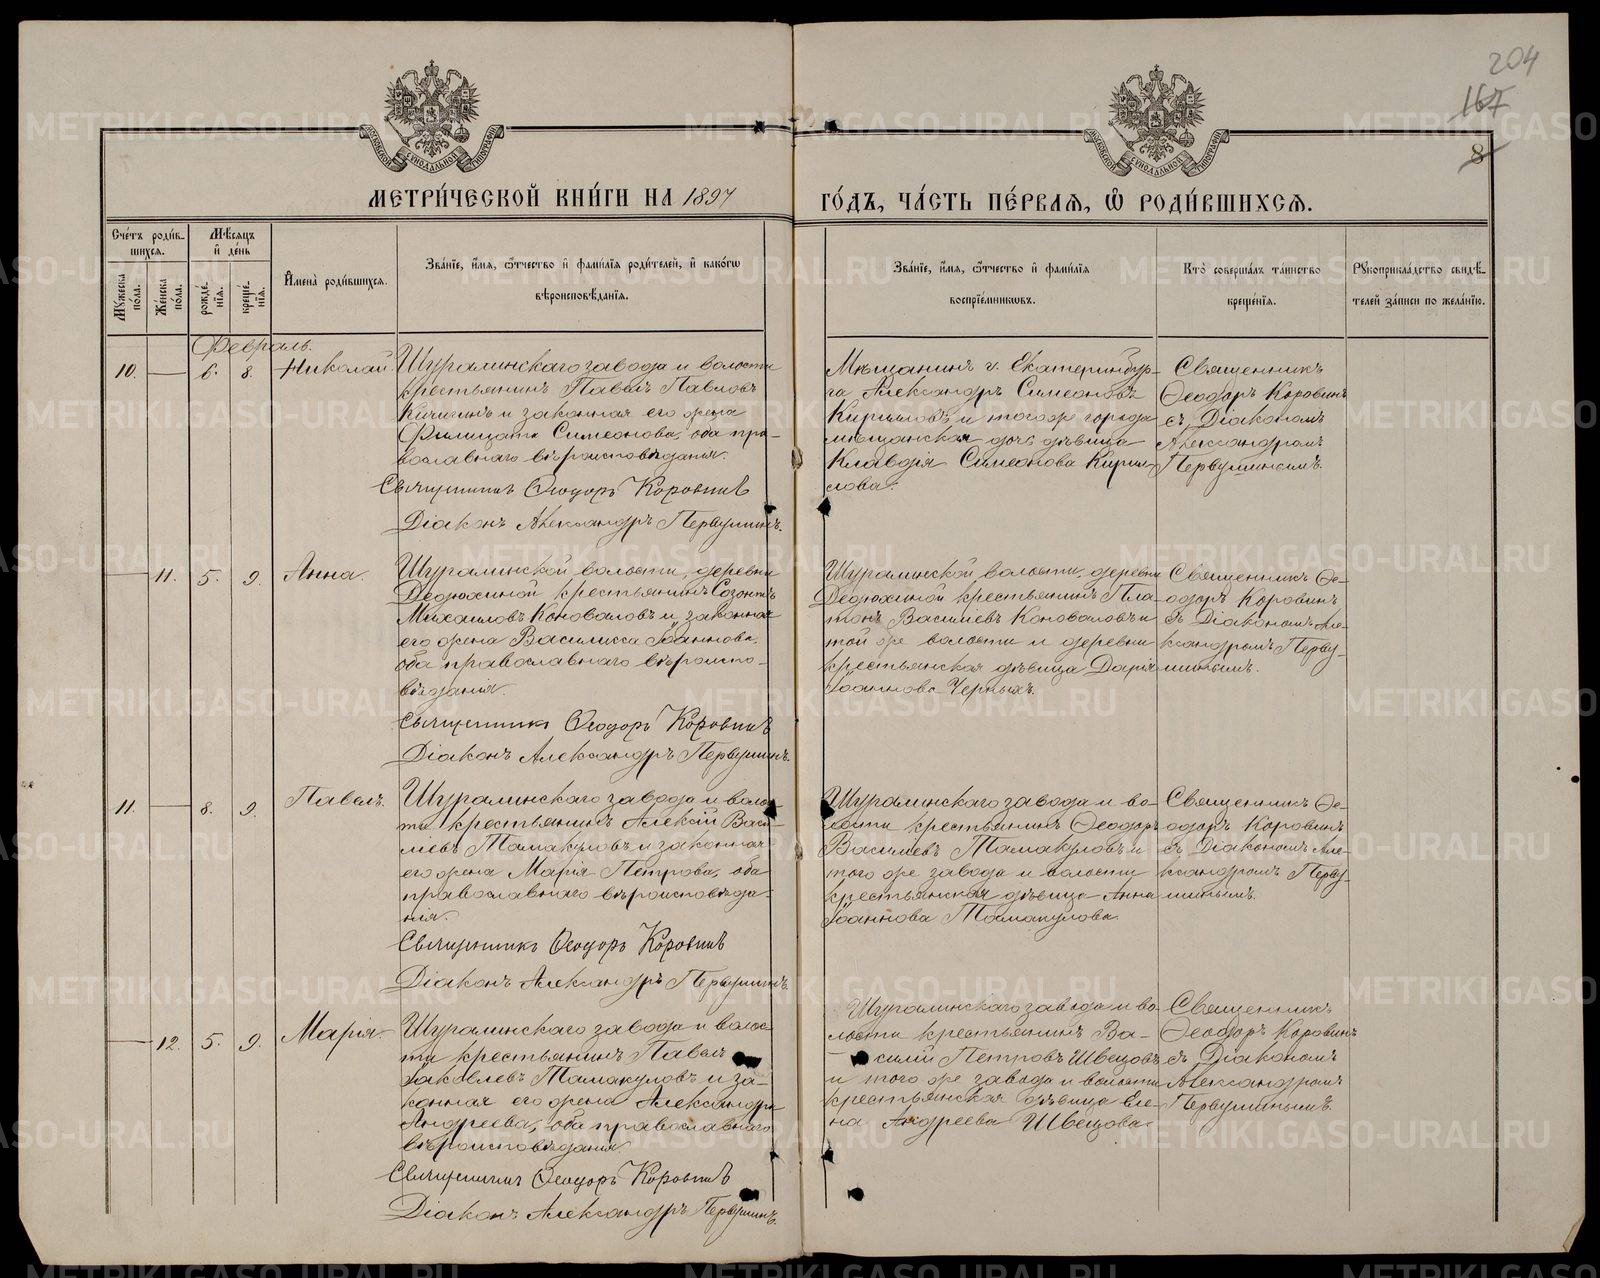 204
167
8
МОСКОВСКОЙ СУНОДАЛЬНОЙ ТИПОГРАФІИ
МОСКОВСКОЙ СУНОДАЛЬНОЙ ТИПОГРАФІИ
МЕТРИ́ЧЕСКОЙ КНИ́ГИ НА 1897
ГО́ДЪ, ЧА́СТЬ ПЕ́РВАЯ, Ѡ РОДИ́ВШИХСЯ.
Сче́тъ роди́в-
шихся.
Му́жеска по́ла.
Же́нска по́ла.
Мѣ́сяцъ и де́нь
рожде́нія.
креще́нія.
Имена̀ роди́вшихся.
Зва́ніе, и́мя, ѻ́тчество и фами́лія роди́телей, и како́гѡ
вѣроисповѣ́данія.
Зва́ніе, и́мя, ѻ́тчество и фами́лія
воспріе́мниковъ.
Кто̀ соверша́лъ та́инство
креще́нія.
Рꙋкоприкла́дство свидѣ́-
телей за́писи по жела́нію.
Февраль.
10. — 6. 8. Николай
Шуралинскаго завода и волости
крестьянинъ Павелъ Павловъ
Кичигинъ и законная его жена
Филицата Симеонова, оба пра-
вославнаго вѣроисповѣданія.
Священникъ Ѳеодоръ Коровинъ
Діаконъ Александръ Первушинъ.
Мѣщанинъ г. Екатеринбур-
га Александръ Симеоновъ
Кирилловъ и того же города
мѣщанская дочь дѣвица
Клавдія Симеонова Кирил-
лова.
Священникъ
Ѳеодоръ Коровинъ
съ Діакономъ
Александромъ
Первушинымъ.
— 11. 5. 9. Анна.
Шуралинской волости, деревни
Дедюхиной крестьянинъ Созонтъ
Михаиловъ Коноваловъ и законная
его жена Василисса Іоаннова,
оба православнаго вѣроиспо-
вѣданія.
Священникъ Ѳеодоръ Коровинъ
Діаконъ Александръ Первушинъ.
Шуралинской волости, деревни
Дедюхиной крестьянинъ Пла-
тонъ Василіевъ Коноваловъ и
той же волости и деревни
крестьянская дѣвица Дарія
Іоаннова Черныхъ.
Священникъ Ѳе-
одоръ Коровинъ
съ Діакономъ Але-
ксандромъ Перву-
шинымъ.
11. — 8. 9. Павелъ.
Шуралинскаго завода и волос-
ти крестьянинъ Алексій Васи-
лиевъ Тамакуловъ и законная
его жена Марія Петрова, оба
православнаго вѣроисповѣда-
нія.
Священникъ Ѳеодоръ Коровинъ
Діаконъ Александръ Первушинъ.
Шуралинскаго завода и во-
лости крестьянинъ Ѳеодоръ
Василіевъ Тамакуловъ и
того же завода и волости
крестьянская дѣвица Анна
Іоаннова Тамакулова.
Священникъ Ѳе-
одоръ Коровинъ
съ Діакономъ Але-
ксандромъ Перву-
шинымъ.
— 12. 5. 9. Марія.
Шуралинскаго завода и волос-
ти крестьянинъ Павелъ
Іаковлевъ Тамакуловъ и за-
конная его жена Александра
Андреева, оба православнаго
вѣроисповѣданія.
Священникъ Ѳеодоръ Коровинъ
Діаконъ Александръ Первушинъ.
Шуралинскаго завода и во-
лости крестьянинъ Ва-
силій Петровъ Швецовъ
и того же завода и волости
крестьянская дѣвица Еле-
на Андреева Швецова.
Священникъ
Ѳеодоръ Коровинъ
съ Діакономъ
Александромъ
Первушинымъ.
METRIKI.GASO-URAL.RU